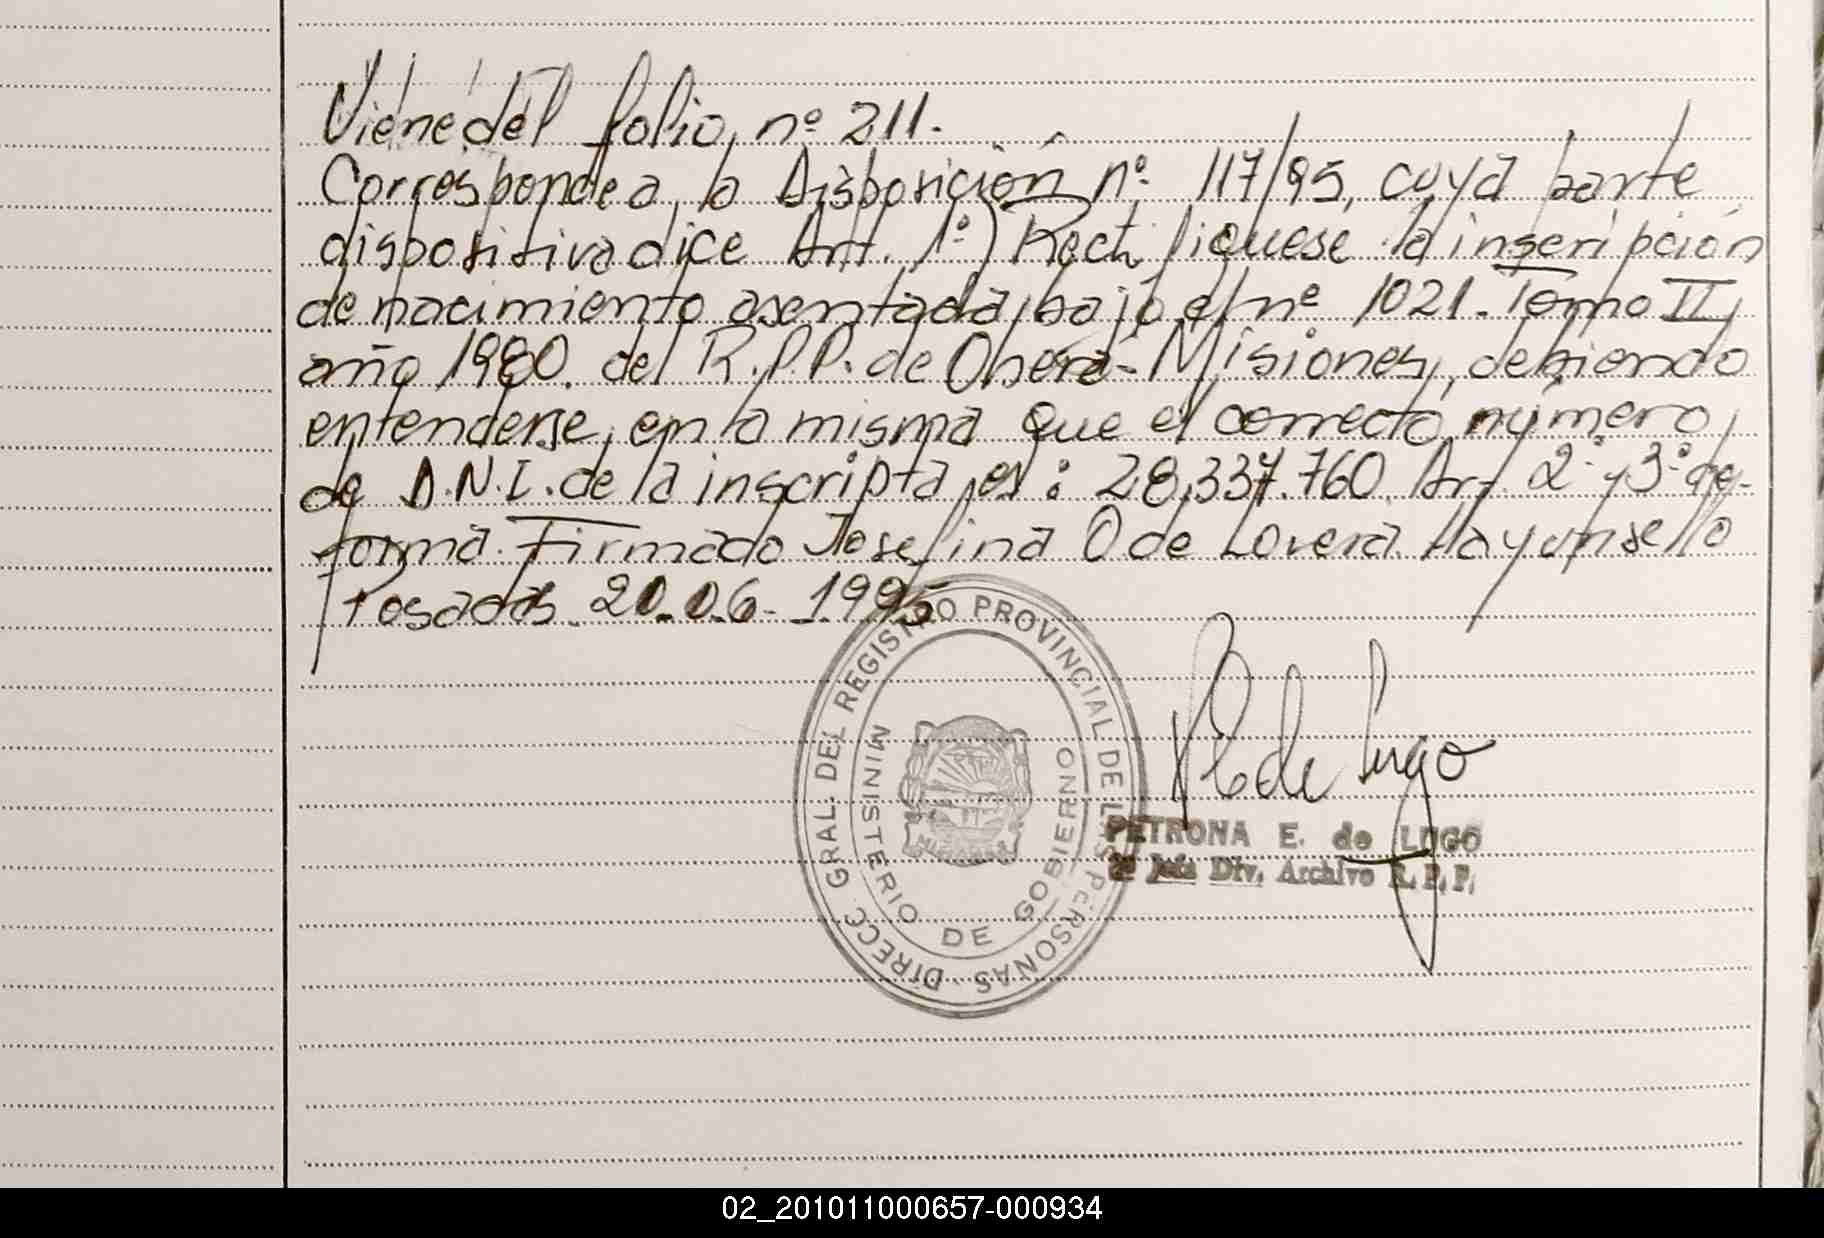 Viene del folio nº 211.
Corresponde a la Disposición nº 117/95, cuya parte
dispositiva dice Art. 1º) Rectifiquese la inscripción
de nacimiento asentada bajo el nº 1021. Tomo II,
año 1980. del R.P.P. de Oberá-Misiones, debiendo
entenderse, en la misma que el correcto número
de D.N.I. de la inscripta es: 28.337.760. Art. 2º y 3º de
forma. Firmado Josefina O de Lovera. Hay un sello
Posadas. 20.06-1995
DIRECC. GRAL. DEL REGISTRO PROVINCIAL DE LAS PERSONAS
MINISTERIO DE GOBIERNO
P E de Lugo
PETRONA E. de LUGO
Jefa Div. Archivo R. P. P.
02_201011000657-000934